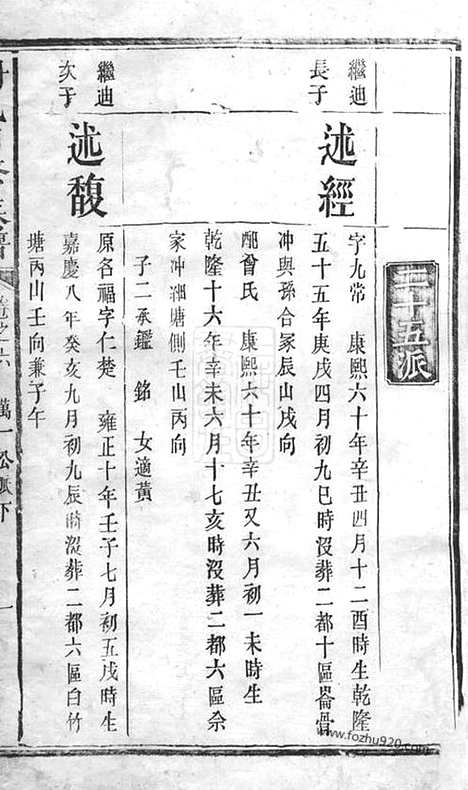 二十五派
繼迪
長子
述經
字九常 康熙六十年辛丑四月十二酉時生乾隆
五十五年庚戌四月初九巳時沒葬二都十區崙骨
冲與孫合冢辰山戌向
配曾氏 康熙六十年辛丑又六月初一未時生
乾隆十六年辛未六月十七亥時沒葬二都六區佘
家冲湘塘側壬山丙向
子二承鑑 銘 女適黃
繼迪
次子
述馥
原名福字仁楚 雍正十年壬子七月初五戌時生
嘉慶八年癸亥九月初九辰時沒葬二都六區白竹
塘丙山壬向兼子午
卷之六 萬一公派下 一
www.fozhu920.com